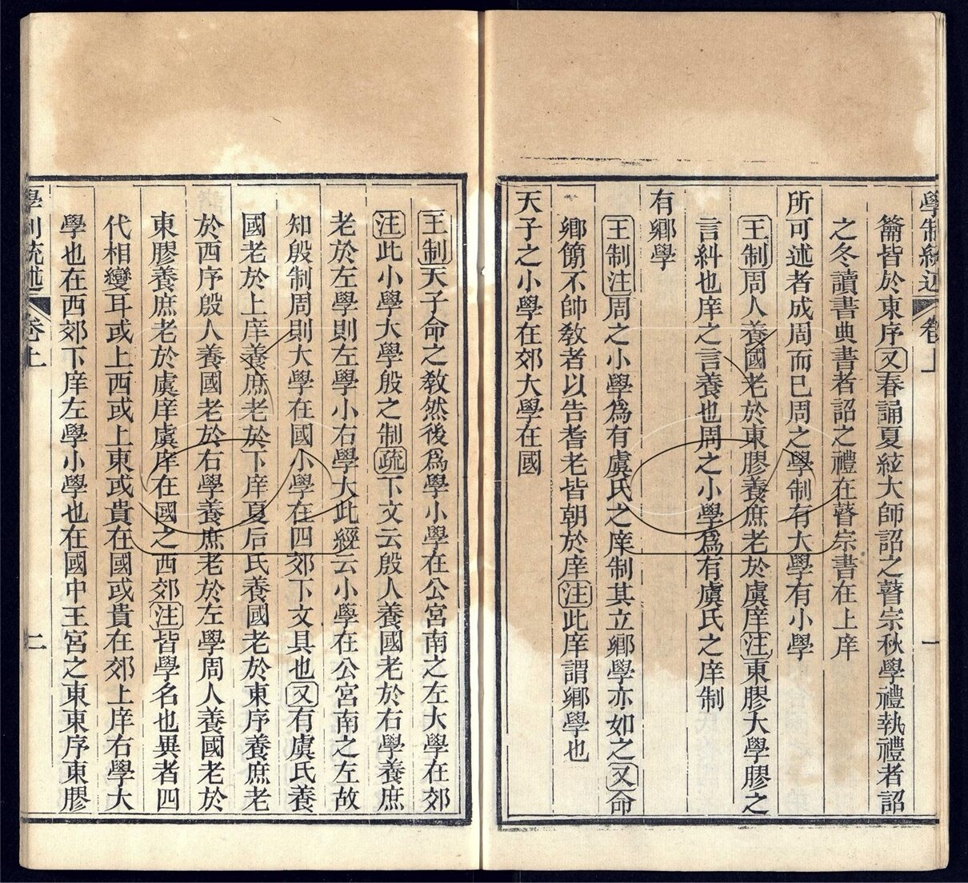 學制統述 卷上 一
籥皆於東序又春誦夏絃大師詔之瞽宗秋學禮執禮者詔
之冬讀書典書者詔之禮在瞽宗書在上庠
所可述者成周而已周之學制有大學有小學
王制周人養國老於東膠養庶老於虞庠注東膠大學膠之
言糾也庠之言養也周之小學爲有虞氏之庠制
有鄉學
王制注周之小學爲有虞氏之庠制其立鄉學亦如之又命
鄉簡不帥敎者以告耆老皆朝於庠注此庠謂鄉學也
天子之小學在郊大學在國
王制天子命之敎然後爲學小學在公宮南之左大學在郊
注此小學大學殷之制疏下文云殷人養國老於右學養庶
老於左學則左學小右學大此經云小學在公宮南之左故
知殷制周則大學在國小學在四郊下文具也又有虞氏養
國老於上庠養庶老於下庠夏后氏養國老於東序養庶老
於西序殷人養國老於右學養庶老於左學周人養國老於
東膠養庶老於虞庠虞庠在國之西郊注皆學名也異者四
代相變耳或上西或上東或貴在國或貴在郊上庠右學大
學也在西郊下庠左學小學也在國中王宮之東東序東膠
學制統述 卷上 二